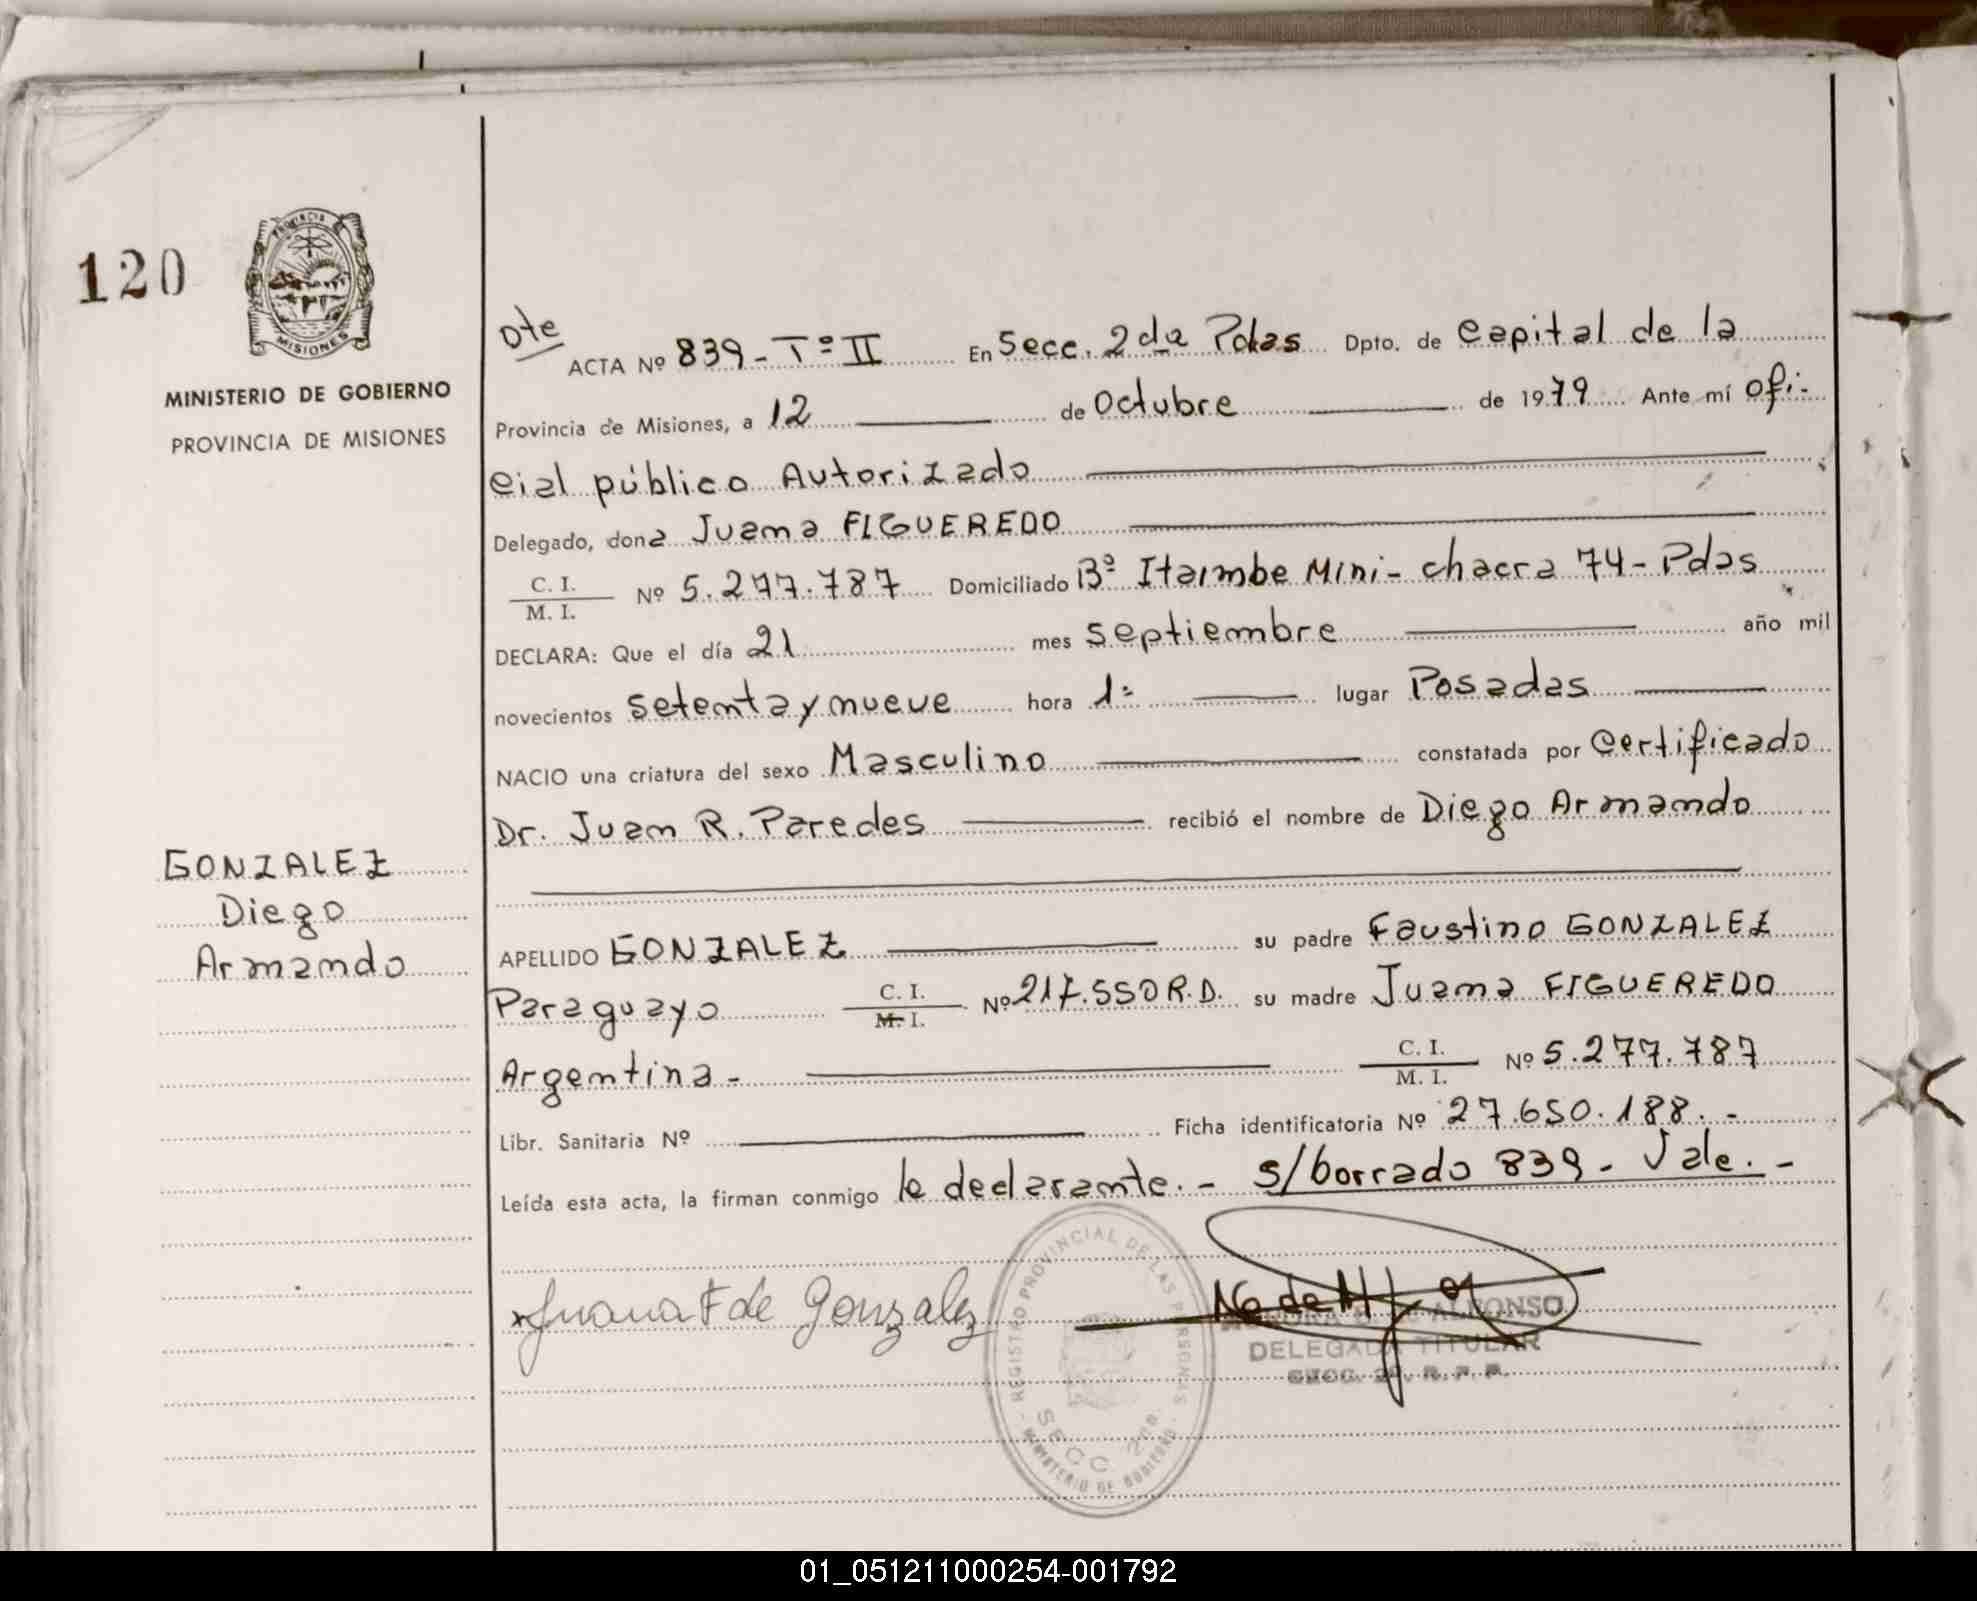 120
PROVINCIA
MISIONES
MINISTERIO DE GOBIERNO
PROVINCIA DE MISIONES
GONZALEZ
Diego
Armando
Dte
ACTA Nº 839 - Tº II En Secc. 2da Pdas Dpto. de Capital de la
Provincia de Misiones, a 12 de Octubre de 1979 Ante mí ofi-
cial público Autorizado
Delegado, dona Juana FIGUEREDO
C. I.
M. I. Nº 5.277.787 Domiciliado Bº Itaimbe Mini - chacra 74 - Pdas
DECLARA: Que el día 21 mes septiembre año mil
novecientos setenta y nueve hora 1= lugar Posadas
NACIO una criatura del sexo Masculino constatada por certificado
Dr. Juan R. Paredes recibió el nombre de Diego Armando
APELLIDO GONZALEZ su padre Faustino GONZALEZ
Paraguayo C. I. M. I. Nº 217.550 R.D. su madre Juana FIGUEREDO
Argentina - C. I. M. I. Nº 5.277.787
Libr. Sanitaria Nº Ficha identificatoria Nº 27.650.188. -
Leída esta acta, la firman conmigo la declarante. - s/borrado 839 - Vale. -
Juana F de Gonzalez
REGISTRO PROVINCIAL DE LAS PERSONAS
SECC. 2da.
MINISTERIO DE GOBIERNO
ALFONSO
DELEGADA TITULAR
SECC. 2ª. R. P. P.
01_051211000254-001792